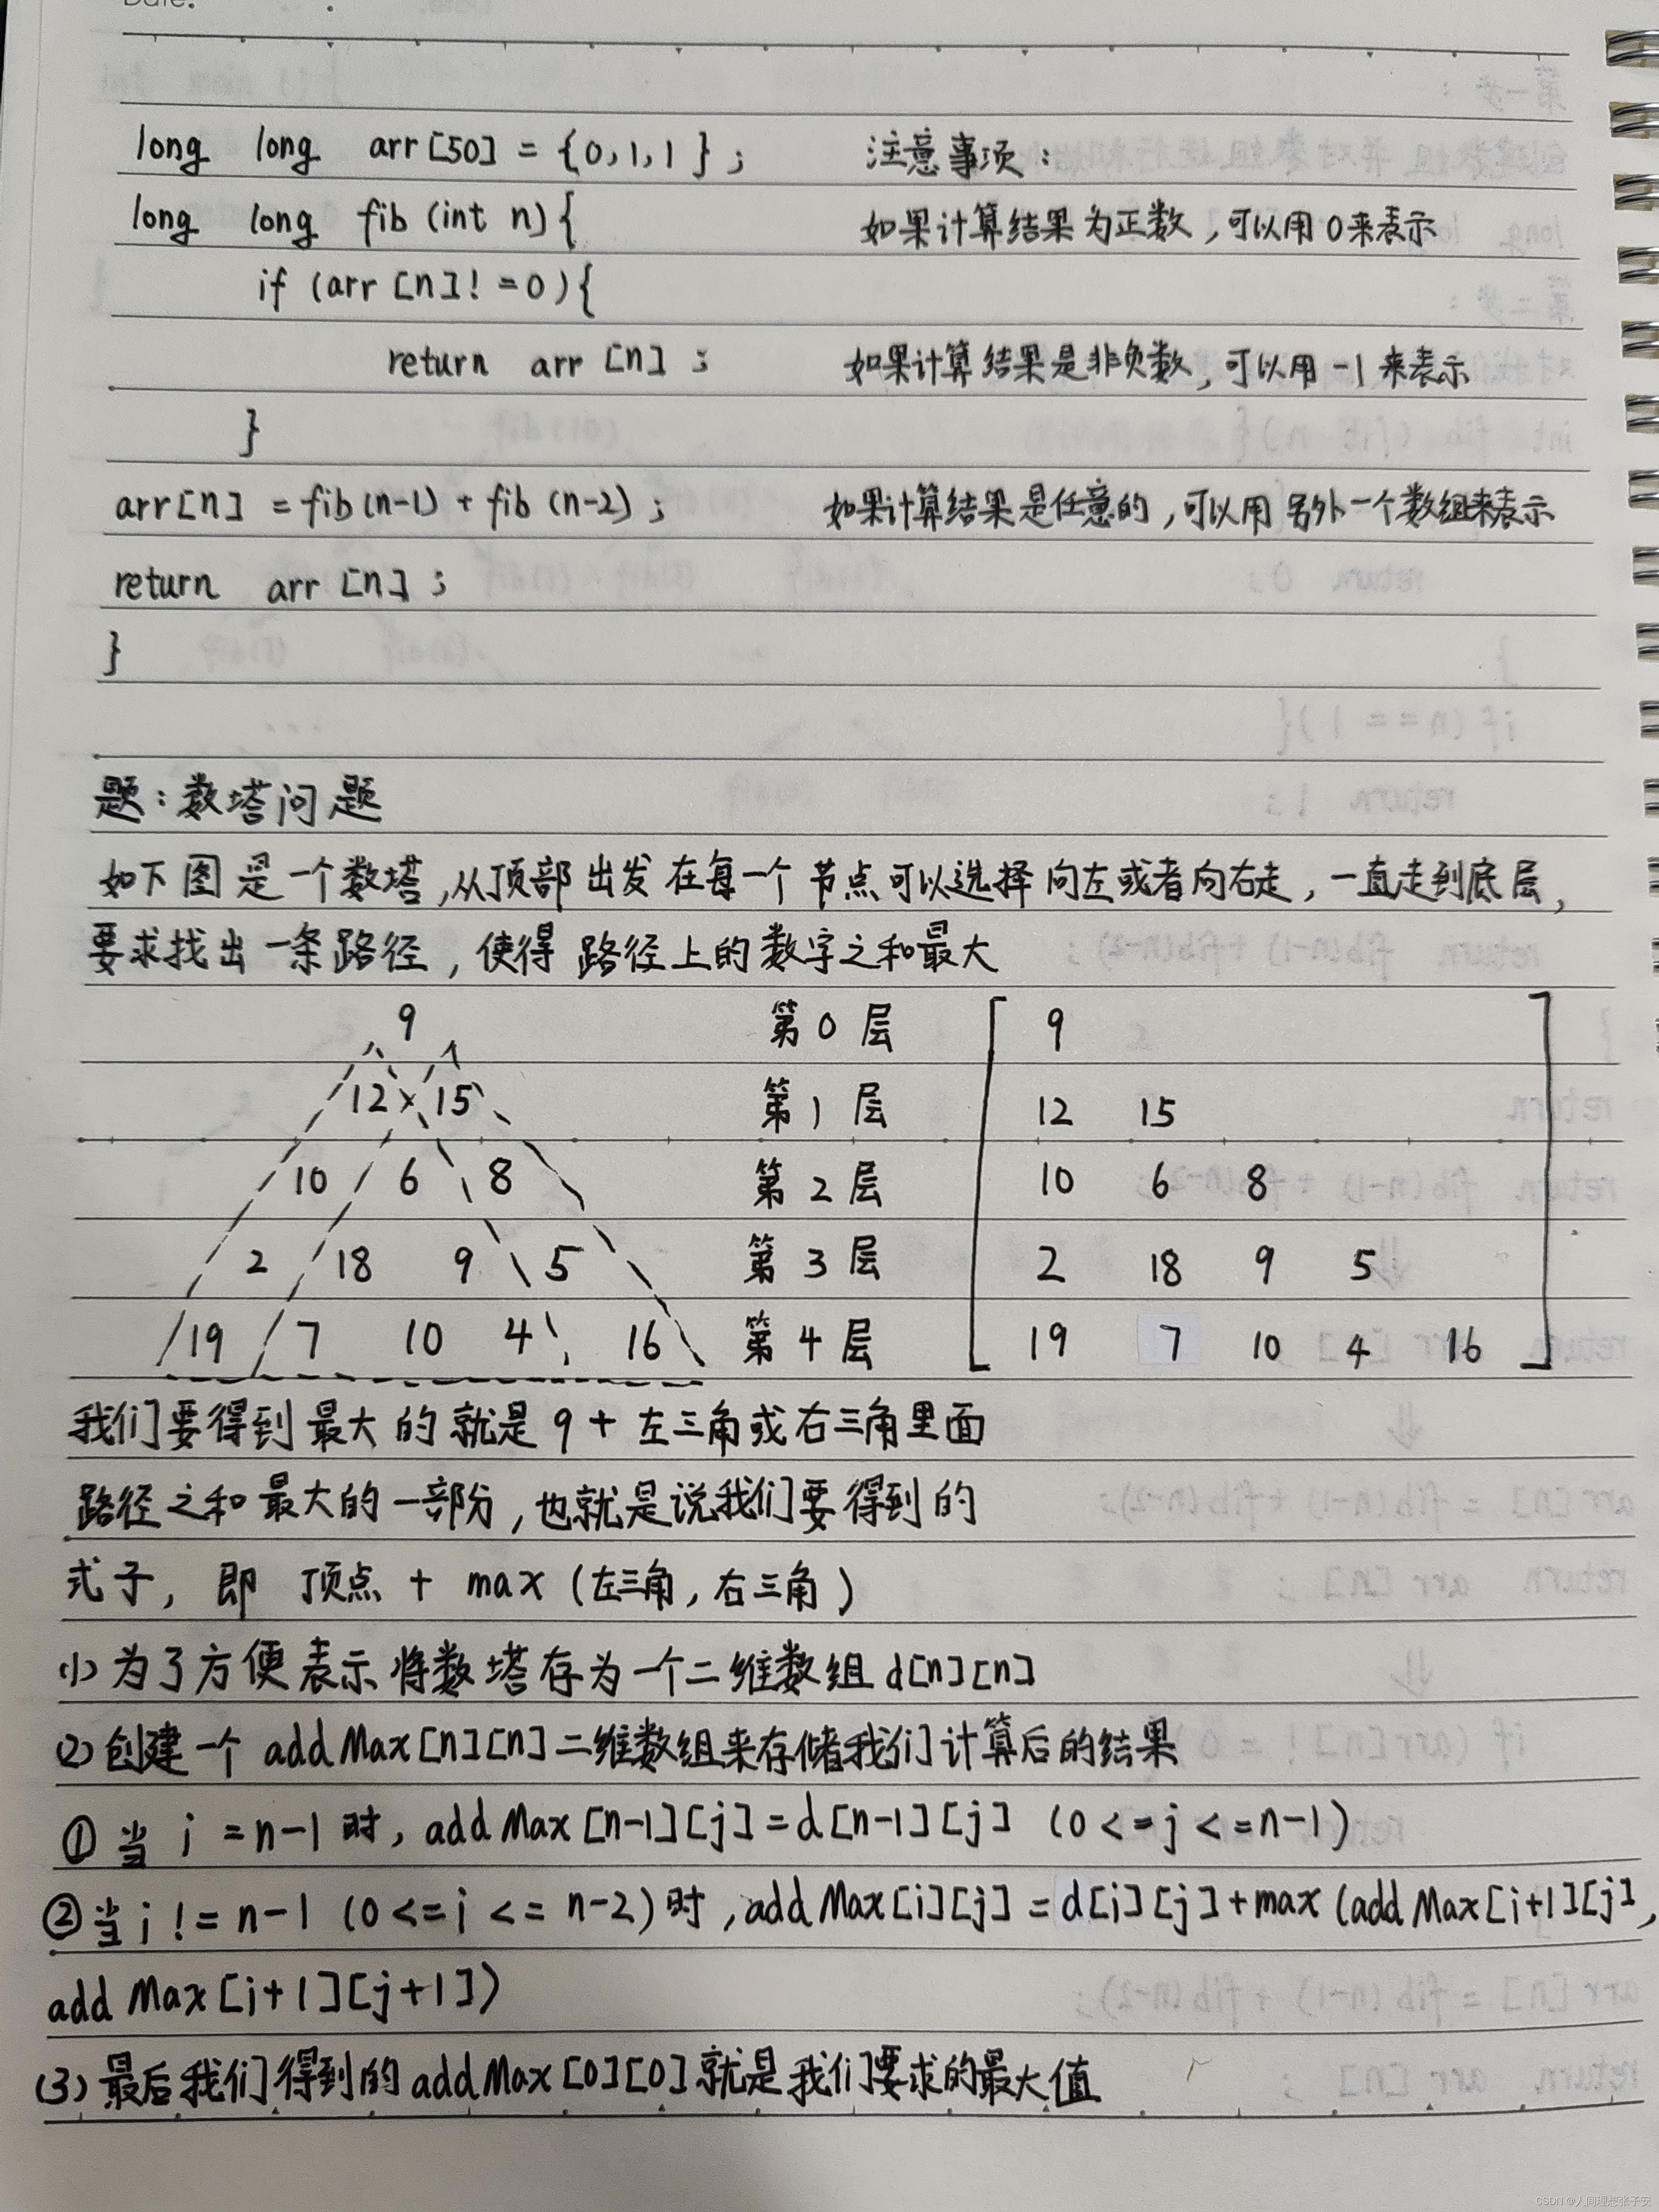 Date.
long long arr[50] = {0,1,1};
注意事项:
long long fib (int n){
如果计算结果为正数,可以用0来表示
if (arr[n]!=0){
return arr[n];
如果计算结果是非负数,可以用-1来表示
}
arr[n] = fib(n-1) + fib(n-2);
如果计算结果是任意的,可以用另外一个数组来表示
return arr[n];
}
题:数塔问题
如下图是一个数塔,从顶部出发在每一个节点可以选择向左或者向右走,一直走到底层,
要求找出一条路径,使得路径上的数字之和最大
9 第0层 9
12 15 第1层 12 15
10 6 8 第2层 10 6 8
2 18 9 5 第3层 2 18 9 5
19 7 10 4 16 第4层 19 7 10 4 16
我们要得到最大的就是9+左三角或右三角里面
路径之和最大的一部分,也就是说我们要得到的
式子,即 顶点 + max (左三角,右三角)
(1)为了方便表示将数塔存为一个二维数组d[n][n]
(2)创建一个addMax[n][n]二维数组来存储我们计算后的结果
①当 i=n-1时,addMax[n-1][j]=d[n-1][j] (0<=j<=n-1)
②当i!=n-1 (0<=i<=n-2)时,addMax[i][j]=d[i][j]+max(addMax[i+1][j],
addMax[i+1][j+1])
(3)最后我们得到的addMax[0][0]就是我们要求的最大值
CSDN @人间理想张子安